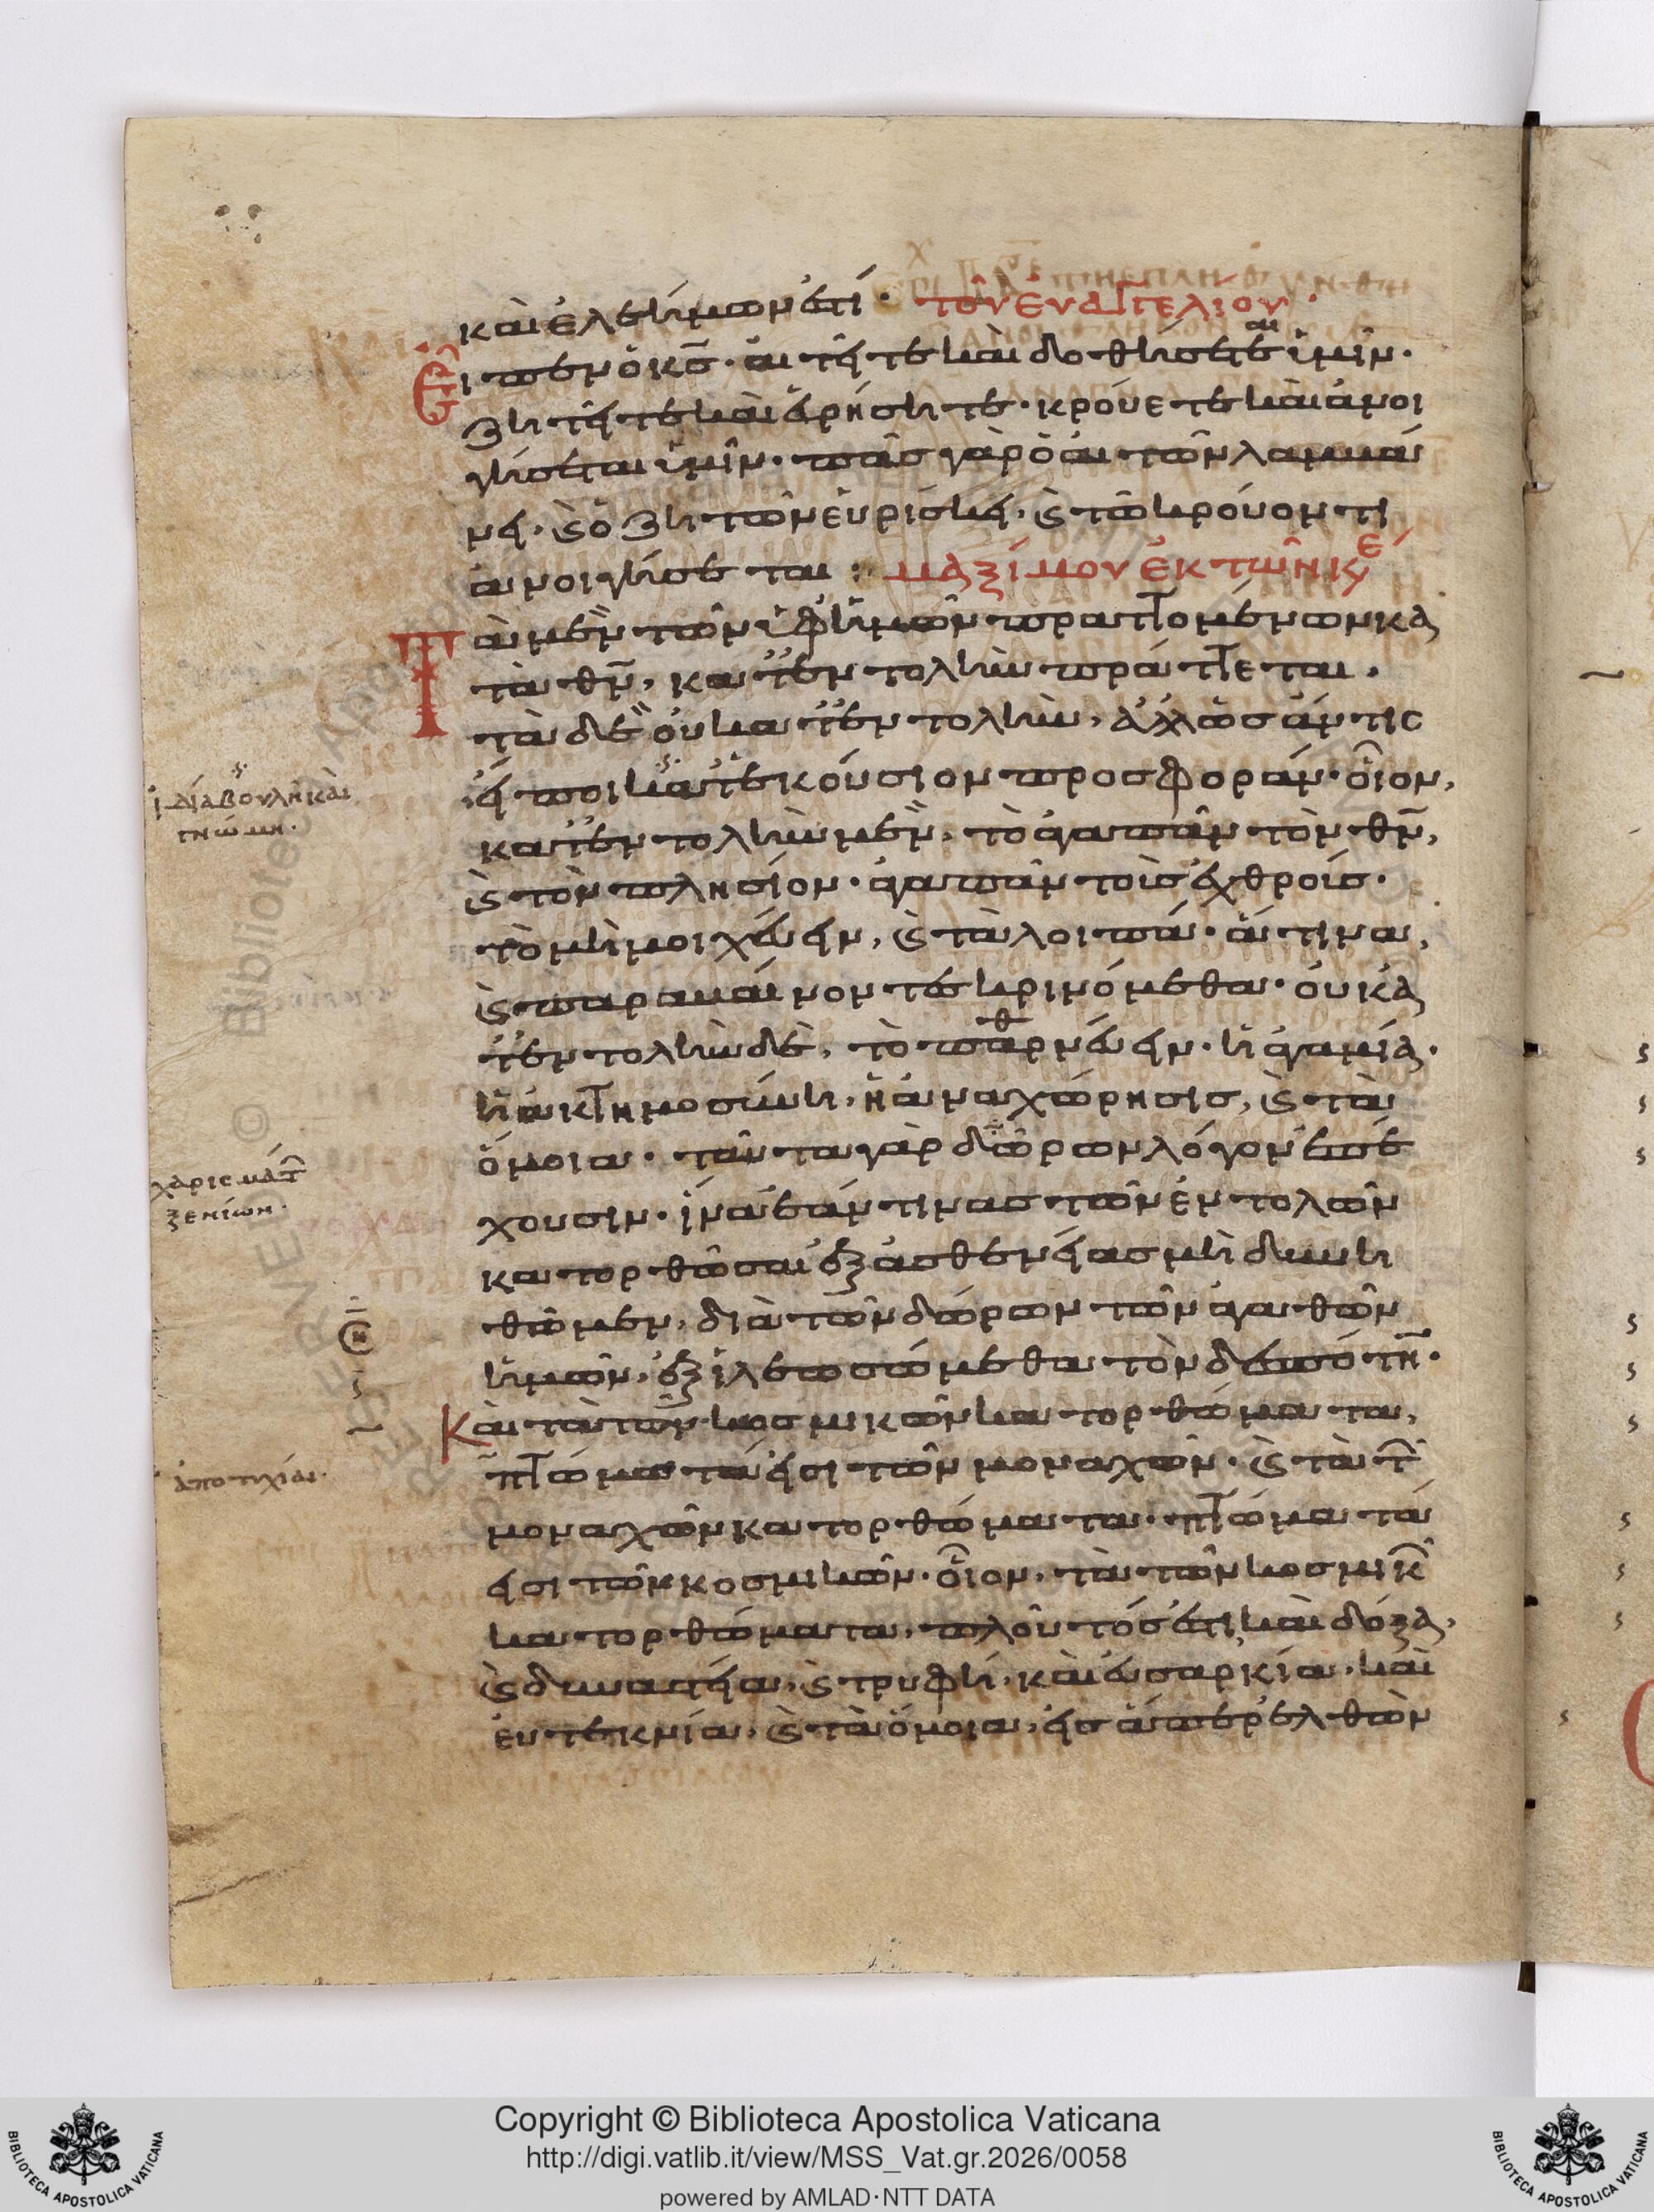 καὶ ἐλεήμων ἐστί· τοῦ εὐαγγελίου·
Εἶπεν ὁ κς̅· αἰτεῖτε καὶ δοθήσεται ὑμῖν·
ζητεῖτε καὶ εὑρήσητε· κρούετε καὶ ἀνοι
γήσεται ὑμῖν· πᾶς γὰρ ὁ αἰτῶν λαμβά
νει· ϛ ὁ ζητῶν εὑρίσκει· ϛ τῶ κρούοντι
ἀνοιγήσεται: μαξίμου ἐκ τῶν κε
Τὰ μὲν τῶν ὑφ' ἡμῶν πραττομένων κα
τὰ θν̅, κατ' ἐντολὴν πράττεται·
τὰ δὲ οὐ κατ' ἐντολὴν, ἀλλ' ὡς ἄν τις
εἴποι καθ' ἑκούσιον προσφοράν· οἷον,
κατ' ἐντολὴν μὲν, τὸ ἀγαπᾶν τὸν θν̅,
ϛ τὸν πλησίον· ἀγαπᾶν τοὶς ἐχθροίς·
τὸ μὴ μοιχεύειν, ϛ τὰ λοιπά· ἅτινα,
ϛ παραβαίνοντες κρινόμεθα· οὐ κα
τ' ἐντολὴν δὲ, τὸ παρθενεύειν· ἡ ἀγαμία·
ἡ ἀκτημοσύνη, ἡ ἀναχώρησις, ϛ τὰ
ὅμοια· ταῦτα γὰρ δώρων λόγον ἐπέ
χουσιν· ἵνα ἐάν τινας τῶν ἐντολῶν
κατορθῶσαι ἐξ ἀσθενείας μὴ δυνη
θῶμεν, διὰ τῶν δώρων τῶν ἀγαθῶν
ἡμῶν, ἐξιλεωσώμεθα τὸν δεσπότην·
Καὶ τὰ τῶν κοσμικῶν κατορθώματα,
πτώματά εἰσι τῶν μοναχῶν· ϛ τὰ τ
μοναχῶν κατορθώματα· πτώματά
εἰσι τῶν κοσμικῶν· οἷον, τὰ τῶν κοσμικ
κατορθώματα, πλοῦτός ἐστι, καὶ δόξα,
ϛ δυναστεία, ϛ τρυφή, καὶ εὐσαρκία, καὶ
εὐτεκνία, ϛ τὰ ὅμοια, εἰς ἅπερ ἐλθὼν
ἰδία βουλῆ καὶ
γνώμη·
χαρισμάτ
ξενίων·
ἀποτυχίαι·
Copyright © Biblioteca Apostolica Vaticana
http://digi.vatlib.it/view/MSS_Vat.gr.2026/0058
powered by AMLAD·NTT DATA
BIBLIOTECA APOSTOLICA VATICANA
BIBLIOTECA APOSTOLICA VATICANA